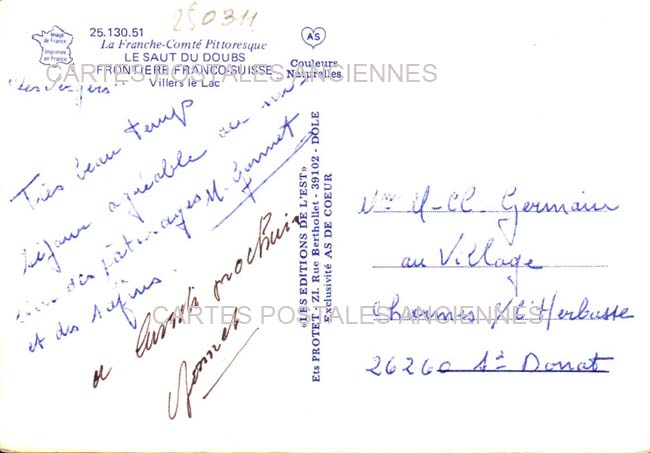 250311
Image
de France
Imprimés
en France
25.130.51
La Franche-Comté Pittoresque
LE SAUT DU DOUBS
FRONTIERE FRANCO-SUISSE
Villers le Lac
AS
Couleurs
Naturelles
CARTES POSTALES ANCIENNES
"Les Vergers"
Très beau temps
séjour agréable au mi-
lieu des pâturages
et des sapins.
M. Gonnet
a lundi prochain
Gonnet
«LES EDITIONS DE L'EST»
Ets PROTET - ZI. Rue Berthollet - 39102 - DOLE
Exclusivité AS DE COEUR
M-Cl. Germain
au Village
Charmes s/L'Herbasse
26260 St Donat
CARTES POSTALES ANCIENNES